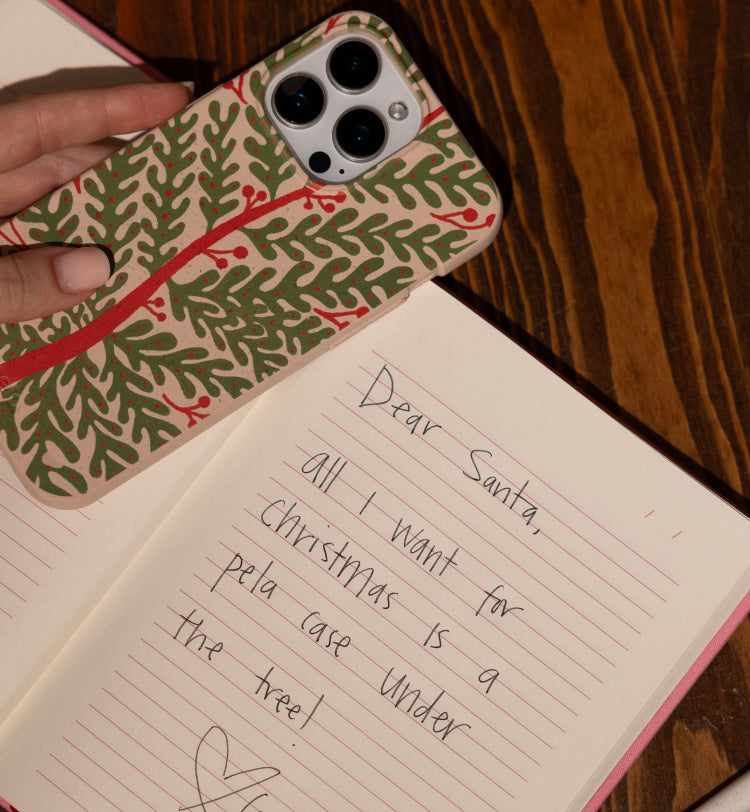 Dear Santa,
all I want for
Christmas is a
pela case under
the tree!